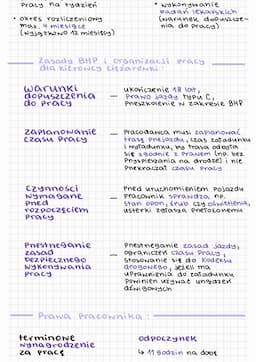 pracy na tydzień
• okres rozliczeniowy
max. 4 miesiące
(wyjątkowo 12 miesięcy)
• wykonywanie
badań lekarskich
(warunek dopuszcze-
nia do pracy)
Zasady BHP i organizacji pracy
dla kierowcy ciężarówki:
warunki
dopuszczenia
do pracy
— ukończenie 18 lat,
prawo jazdy typu C,
przeszkolenie w zakresie BHP
zaplanowanie
czasu pracy
— Pracodawca musi zaplanować
trasę przejazdu, czas załadunku
i rozładunku, by trasa odbyła
się zgodnie z prawem (np. bez
przyspieszania na drodze) i nie
przekraczał czasu pracy
Czynności
wymagane
przed
rozpoczęciem
pracy
— Przed uruchomieniem pojazdu
pracownik sprawdza np.
stan opon, śrub czy oświetlenia,
usterki zgłasza przełożonemu
Przestrzeganie
zasad
bezpiecznego
wykonywania
pracy
— Przestrzeganie zasad jazdy,
ograniczeń czasu pracy,
stosowanie się do kodeksu
drogowego, jeżeli ma
uprawnienia do załadunku
powinien używać urządzeń
dźwigowych
Prawa pracownika:
terminowe
wynagrodzenie
za pracę
odpoczynek
↳ 11 godzin na dobę